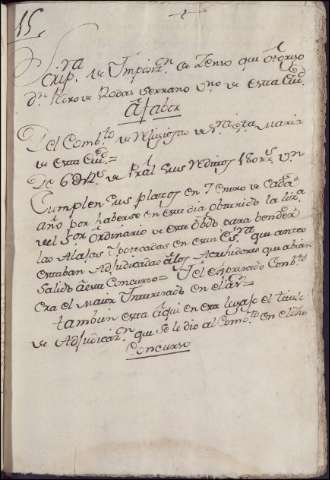 15
Scrip.ra de Imposi.n de Censo que otorgo
dn. Pedro de Rodas Serrano vno de esta Ciud.
A favor
Del Comb.to de Religiosas de S.ta Maria
de esta Ciud.=
De 6 D R.s de Pral sus Reditos 180 R.s vn
Cumplen sus plazos en 7 Enero de Cada
año por haberse en este dia obtenido la liz.a
del S.or Ordinario de este Obdo para bender
las Alajas Ypotecadas en esta Es.ra que antes
estaban Adjudicadas a los Acrehedores que abian
Salido a este Concurso= Y el espresado Comb.to
era el Maior Interesado en el=
tambien esta aqui en este legajo el titulo
de Adjudicaz.n que se le dio al Comb.to en el dho
Concurso